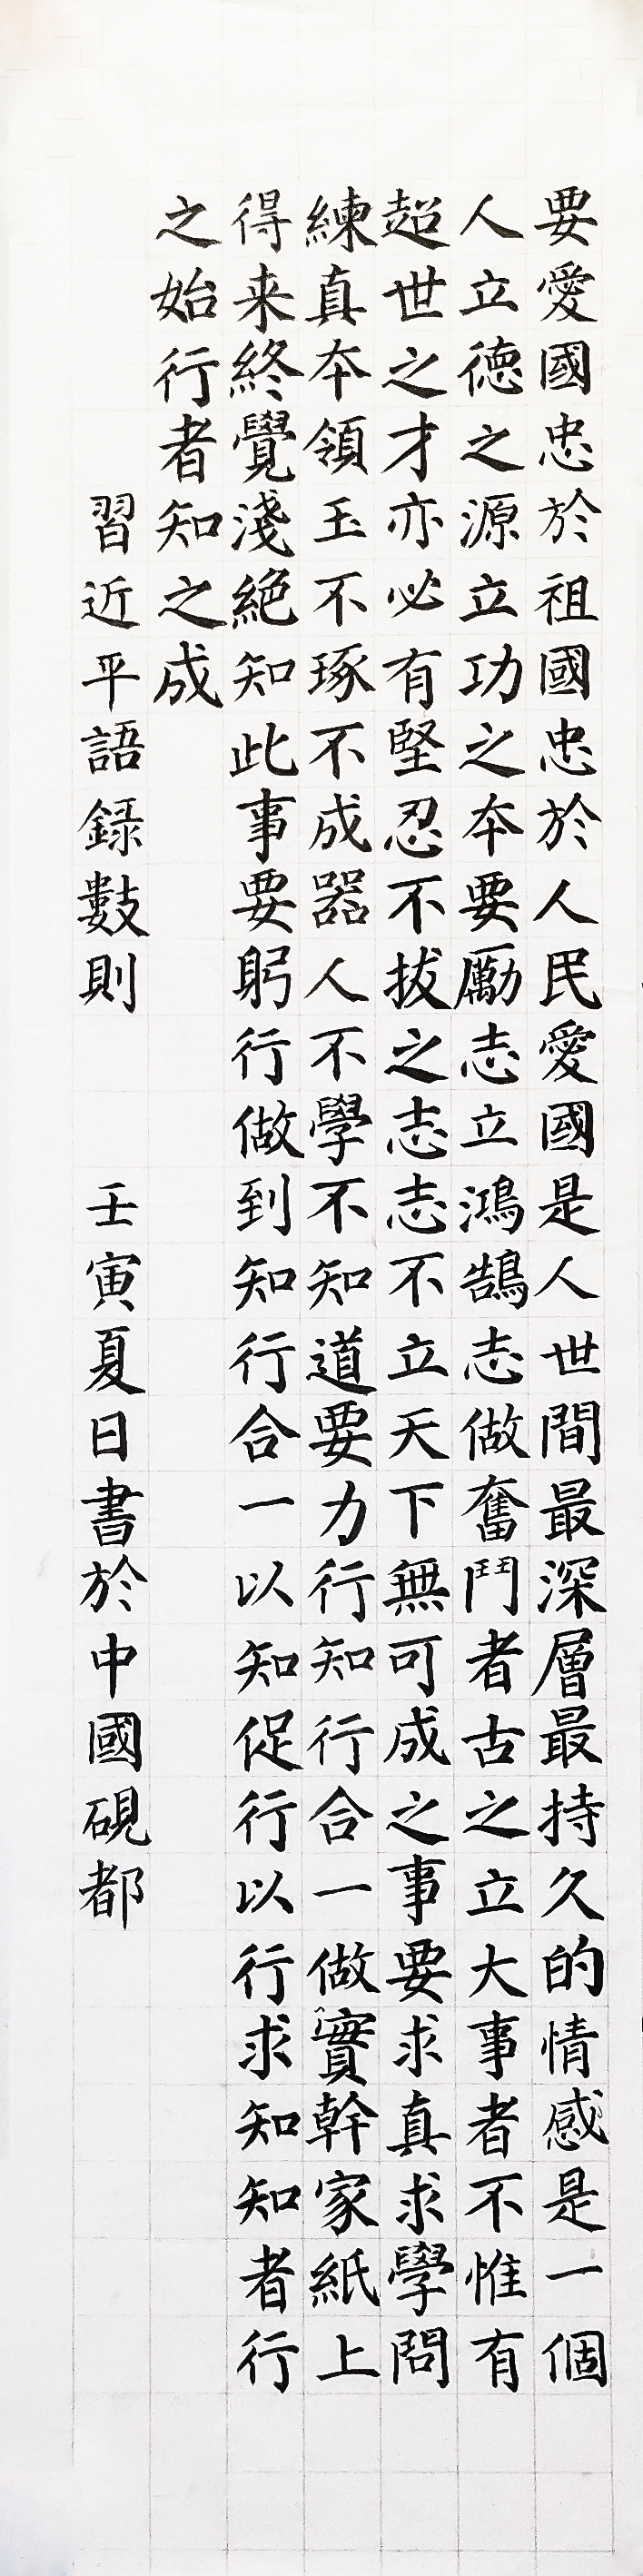 要愛國忠於祖國忠於人民愛國是人世間最深層最持久的情感是一個
人立德之源立功之本要勵志立鴻鵠志做奮鬥者古之立大事者不惟有
超世之才亦必有堅忍不拔之志志不立天下無可成之事要求真求學問
練真本領玉不琢不成器人不學不知道要力行知行合一做實幹家紙上
得来終覺淺絕知此事要躬行做到知行合一以知促行以行求知知者行
之始行者知之成
習近平語録數則 壬寅夏日書於中國硯都